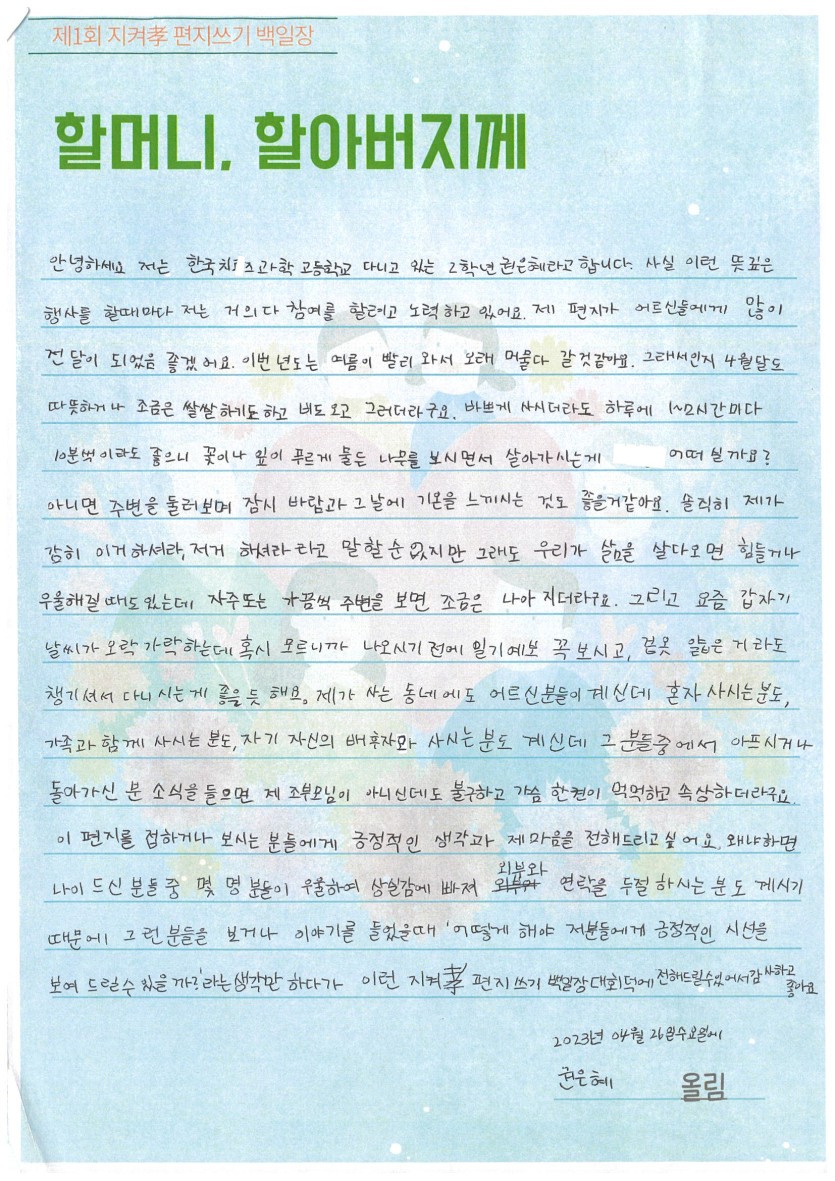 제1회 지켜孝 편지쓰기 백일장
할머니, 할아버지께
안녕하세요 저는 한국치즈과학 고등학교 다니고 있는 2학년 권은혜라고 합니다. 사실 이런 뜻깊은
행사를 할때마다 저는 거의다 참여를 할려고 노력하고 있어요. 제 편지가 어르신들에게 많이
전달이 되었음 좋겠어요. 이번 년도는 여름이 빨리 와서 오래 머물다 갈것같아요. 그래서인지 4월달도
따뜻하거나 조금은 쌀쌀하기도하고 비도오고 그러더라구요. 바쁘게 사시더라도 하루에 1~2시간마다
10분씩이라도 좋으니 꽃이나 잎이 푸르게 물든 나무를 보시면서 살아가시는게 어떠실까요?
아니면 주변을 둘러보며 잠시 바람과 그날에 기온을 느끼시는 것도 좋을거같아요. 솔직히 제가
감히 이거하셔라, 저거 하셔라 라고 말할순 없지만 그래도 우리가 삶을 살다오면 힘들거나
우울해질때도있는데 자주또는 가끔씩 주변을 보면 조금은 나아 지더라구요. 그리고 요즘 갑자기
날씨가 오락 가락하는데 혹시 모르니까 나오시기 전에 일기예보 꼭 보시고, 겉옷 얇은 거라도
챙기셔서 다니시는게 좋을듯 해요. 제가 사는 동네에도 어르신분들이 계신데 혼자 사시는분도,
가족과 함께 사시는 분도, 자기 자신의 배우자와 사시는분도 계신데 그 분들중에서 아프시거나
돌아가신 분 소식을 들으면 제 조부모님이 아니신데도 불구하고 가슴 한켠이 먹먹하고 속상하더라구요.
이 편지를 접하거나 보시는 분들에게 긍정적인 생각과 제마음을 전해드리고 싶어요. 왜냐하면
나이 드신 분들 중 몇 명 분들이 우울하여 상실감에 빠져 외부와 연락을 두절 하시는 분도 계시기
때문에 그런분들을 보거나 이야기를 들었을때 '어떻게 해야 저분들에게 긍정적인 시선을
보여 드릴수 있을까?'라는생각만 하다가 이런 지켜孝 편지쓰기 백일장대회덕에 전해드릴수있어서감사하고
좋아요
2023년 04월 26일수요일에
권은혜 올림